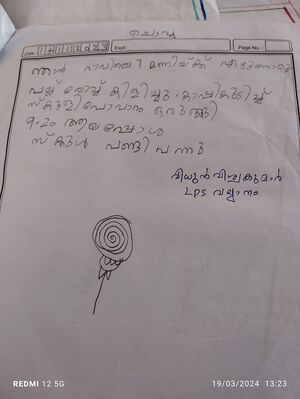 ചൊവ്വ
Date
Expt
Page No.
ഞാൻ രാവിലെ 7 മണിയ്ക്ക് എഴുന്നേറ്റു
പല്ല് തേച്ച് കുളിച്ചു. കാപ്പികുടിച്ച്
സ്കൂളിപോവാറ ഒരുങ്ങി
9.20 ആയപ്പോൾ
സ്കൂൾ വണ്ടി വന്നു
വിശ്വകുമാർ
LPS
REDMI 12 5G
19/03/2024 13:23